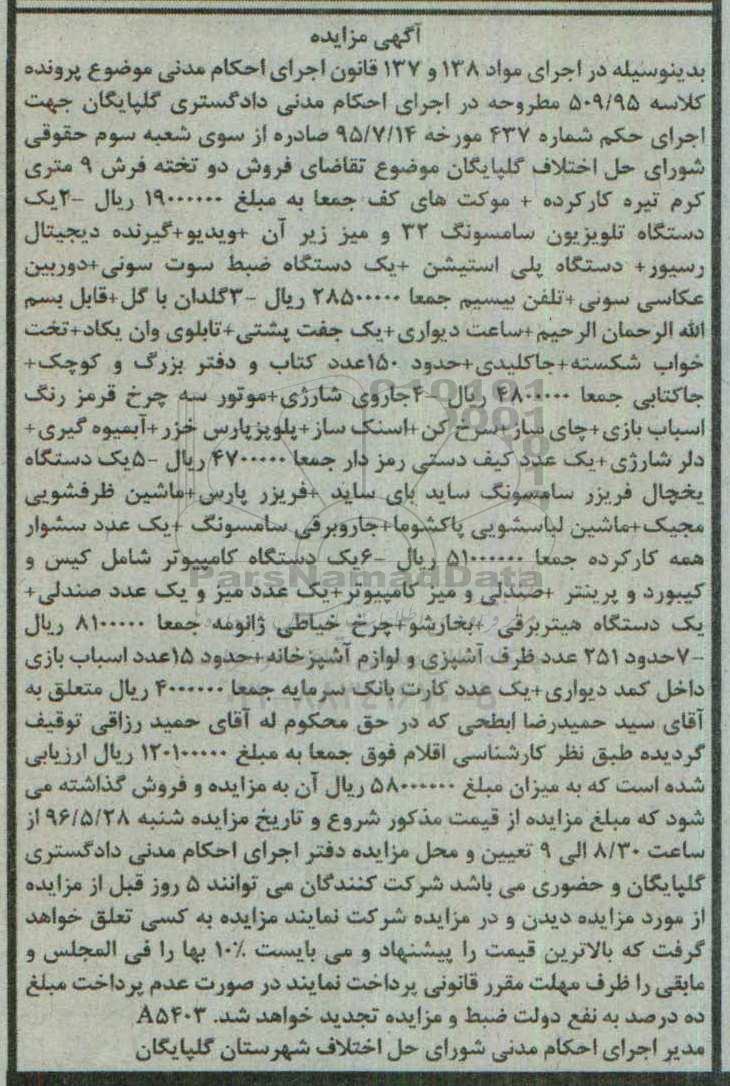 آگهی مزایده
بدینوسیله در اجرای مواد ۱۳۸ و ۱۳۷ قانون اجرای احکام مدنی موضوع پرونده
کلاسه ۵۰۹/۹۵ مطروحه در اجرای احکام مدنی دادگستری گلپایگان جهت
اجرای حکم شماره ۴۳۷ مورخه ۹۵/۷/۱۴ صادره از سوی شعبه سوم حقوقی
شورای حل اختلاف گلپایگان موضوع تقاضای فروش دو تخته فرش ۹ متری
کرم تیره کارکرده + موکت های کف جمعا به مبلغ ۱۹۰۰۰۰۰۰ ریال -۲یک
دستگاه تلویزیون سامسونگ ۳۲ و میز زیر آن +ویدیو+گیرنده دیجیتال
رسیور+ دستگاه پلی استیشن +یک دستگاه ضبط سوت سونی+دوربین
عکاسی سونی+تلفن بیسیم جمعا ۲۸۵۰۰۰۰۰ ریال -۳گلدان با گل+قابل بسم
الله الرحمان الرحیم+ساعت دیواری+یک جفت پشتی+تابلوی وان یکاد+تخت
خواب شکسته+جاکلیدی+حدود ۱۵۰عدد کتاب و دفتر بزرگ و کوچک+
جاکتابی جمعا ۴۸۰۰۰۰۰ ریال -۴جاروی شارژی+موتور سه چرخ قرمز رنگ
اسباب بازی+چای ساز+سرخ کن+اسنک ساز+پلوپزپارس خزر+آبمیوه گیری+
دلر شارژی+یک عدد کیف دستی رمز دار جمعا ۴۷۰۰۰۰۰ ریال -۵یک دستگاه
یخچال فریزر سامسونگ ساید بای ساید +فریزر پارس+ماشین ظرفشویی
مجیک+ماشین لباسشویی پاکشوما+جاروبرقی سامسونگ +یک عدد سشوار
همه کارکرده جمعا ۵۱۰۰۰۰۰۰ ریال -۶یک دستگاه کامپیوتر شامل کیس و
کیبورد و پرینتر +صندلی و میز کامپیوتر+یک عدد میز و یک عدد صندلی+
یک دستگاه هیتربرقی +بخارشو+چرخ خیاطی ژانومه جمعا ۸۱۰۰۰۰۰ ریال
-۷حدود ۲۵۱ عدد ظرف آشپزی و لوازم آشپزخانه+حدود ۱۵عدد اسباب بازی
داخل کمد دیواری+یک عدد کارت بانک سرمایه جمعا ۴۰۰۰۰۰۰ ریال متعلق به
آقای سید حمیدرضا ابطحی که در حق محکوم له آقای حمید رزاقی توقیف
گردیده طبق نظر کارشناسی اقلام فوق جمعا به مبلغ ۱۲۰۱۰۰۰۰۰ ریال ارزیابی
شده است که به میزان مبلغ ۵۸۰۰۰۰۰۰ ریال آن به مزایده و فروش گذاشته می
شود که مبلغ مزایده از قیمت مذکور شروع و تاریخ مزایده شنبه ۹۶/۵/۲۸ از
ساعت ۸/۳۰ الی ۹ تعیین و محل مزایده دفتر اجرای احکام مدنی دادگستری
گلپایگان و حضوری می باشد شرکت کنندگان می توانند ۵ روز قبل از مزایده
از مورد مزایده دیدن و در مزایده شرکت نمایند مزایده به کسی تعلق خواهد
گرفت که بالاترین قیمت را پیشنهاد و می بایست ۱۰٪ بها را فی المجلس و
مابقی را ظرف مهلت مقرر قانونی پرداخت نمایند در صورت عدم پرداخت مبلغ
ده درصد به نفع دولت ضبط و مزایده تجدید خواهد شد. A۵۴۰۳
مدیر اجرای احکام مدنی شورای حل اختلاف شهرستان گلپایگان
ParsNamadData